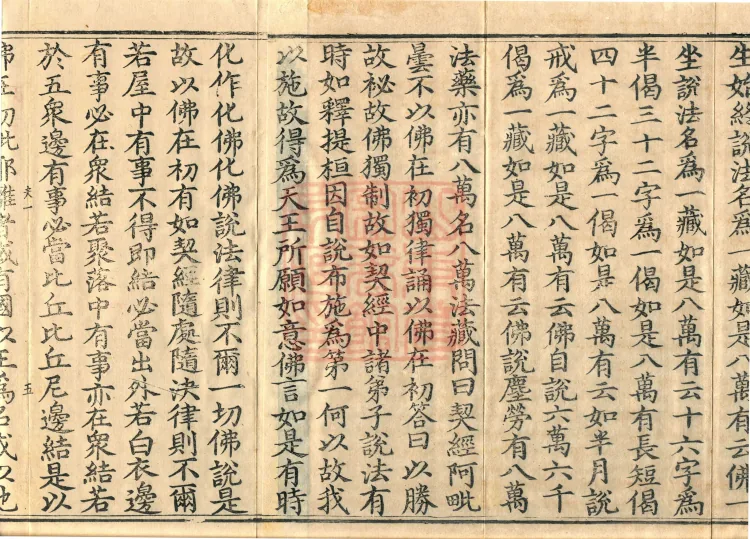 生始終說法名爲一藏如是八萬有云佛一
坐說法名爲一藏如是八萬有云十六字爲
半偈三十二字爲一偈如是八萬有長短偈
四十二字爲一偈如是八萬有云如半月說
戒爲一藏如是八萬有云佛自說六萬六千
偈爲一藏如是八萬有云佛說塵勞有八萬
法藥亦有八萬名八萬法藏問曰契經阿毗
曇不以佛在初獨律誦以佛在初答曰以勝
故祕故佛獨制故如契經中諸弟子說法有
時如釋提桓因自說布施為第一何以故我
以施故得爲天王所願如意佛言如是有時
化作化佛化佛說法律則不爾一切佛說是
故以佛在初有如契經隨處隨決律則不爾
若屋中有事不得即結必當出外若白衣邊
有事必在衆結若聚落中有事亦在衆結若
於五衆邊有事必當比丘比丘尼邊結是以
五